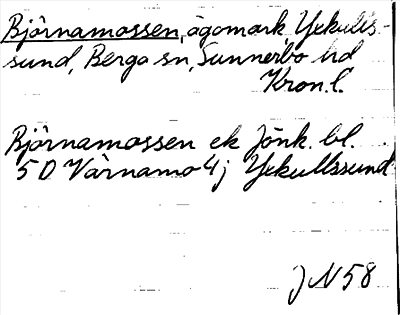 Björnamossen, ägomark Yekulls-
sund, Berga sn, Sunnerbo hd
Kron. l.
Björnamossen ek Jönk. bl.
5 D Värnamo 4 j Yekullssund
J N 58